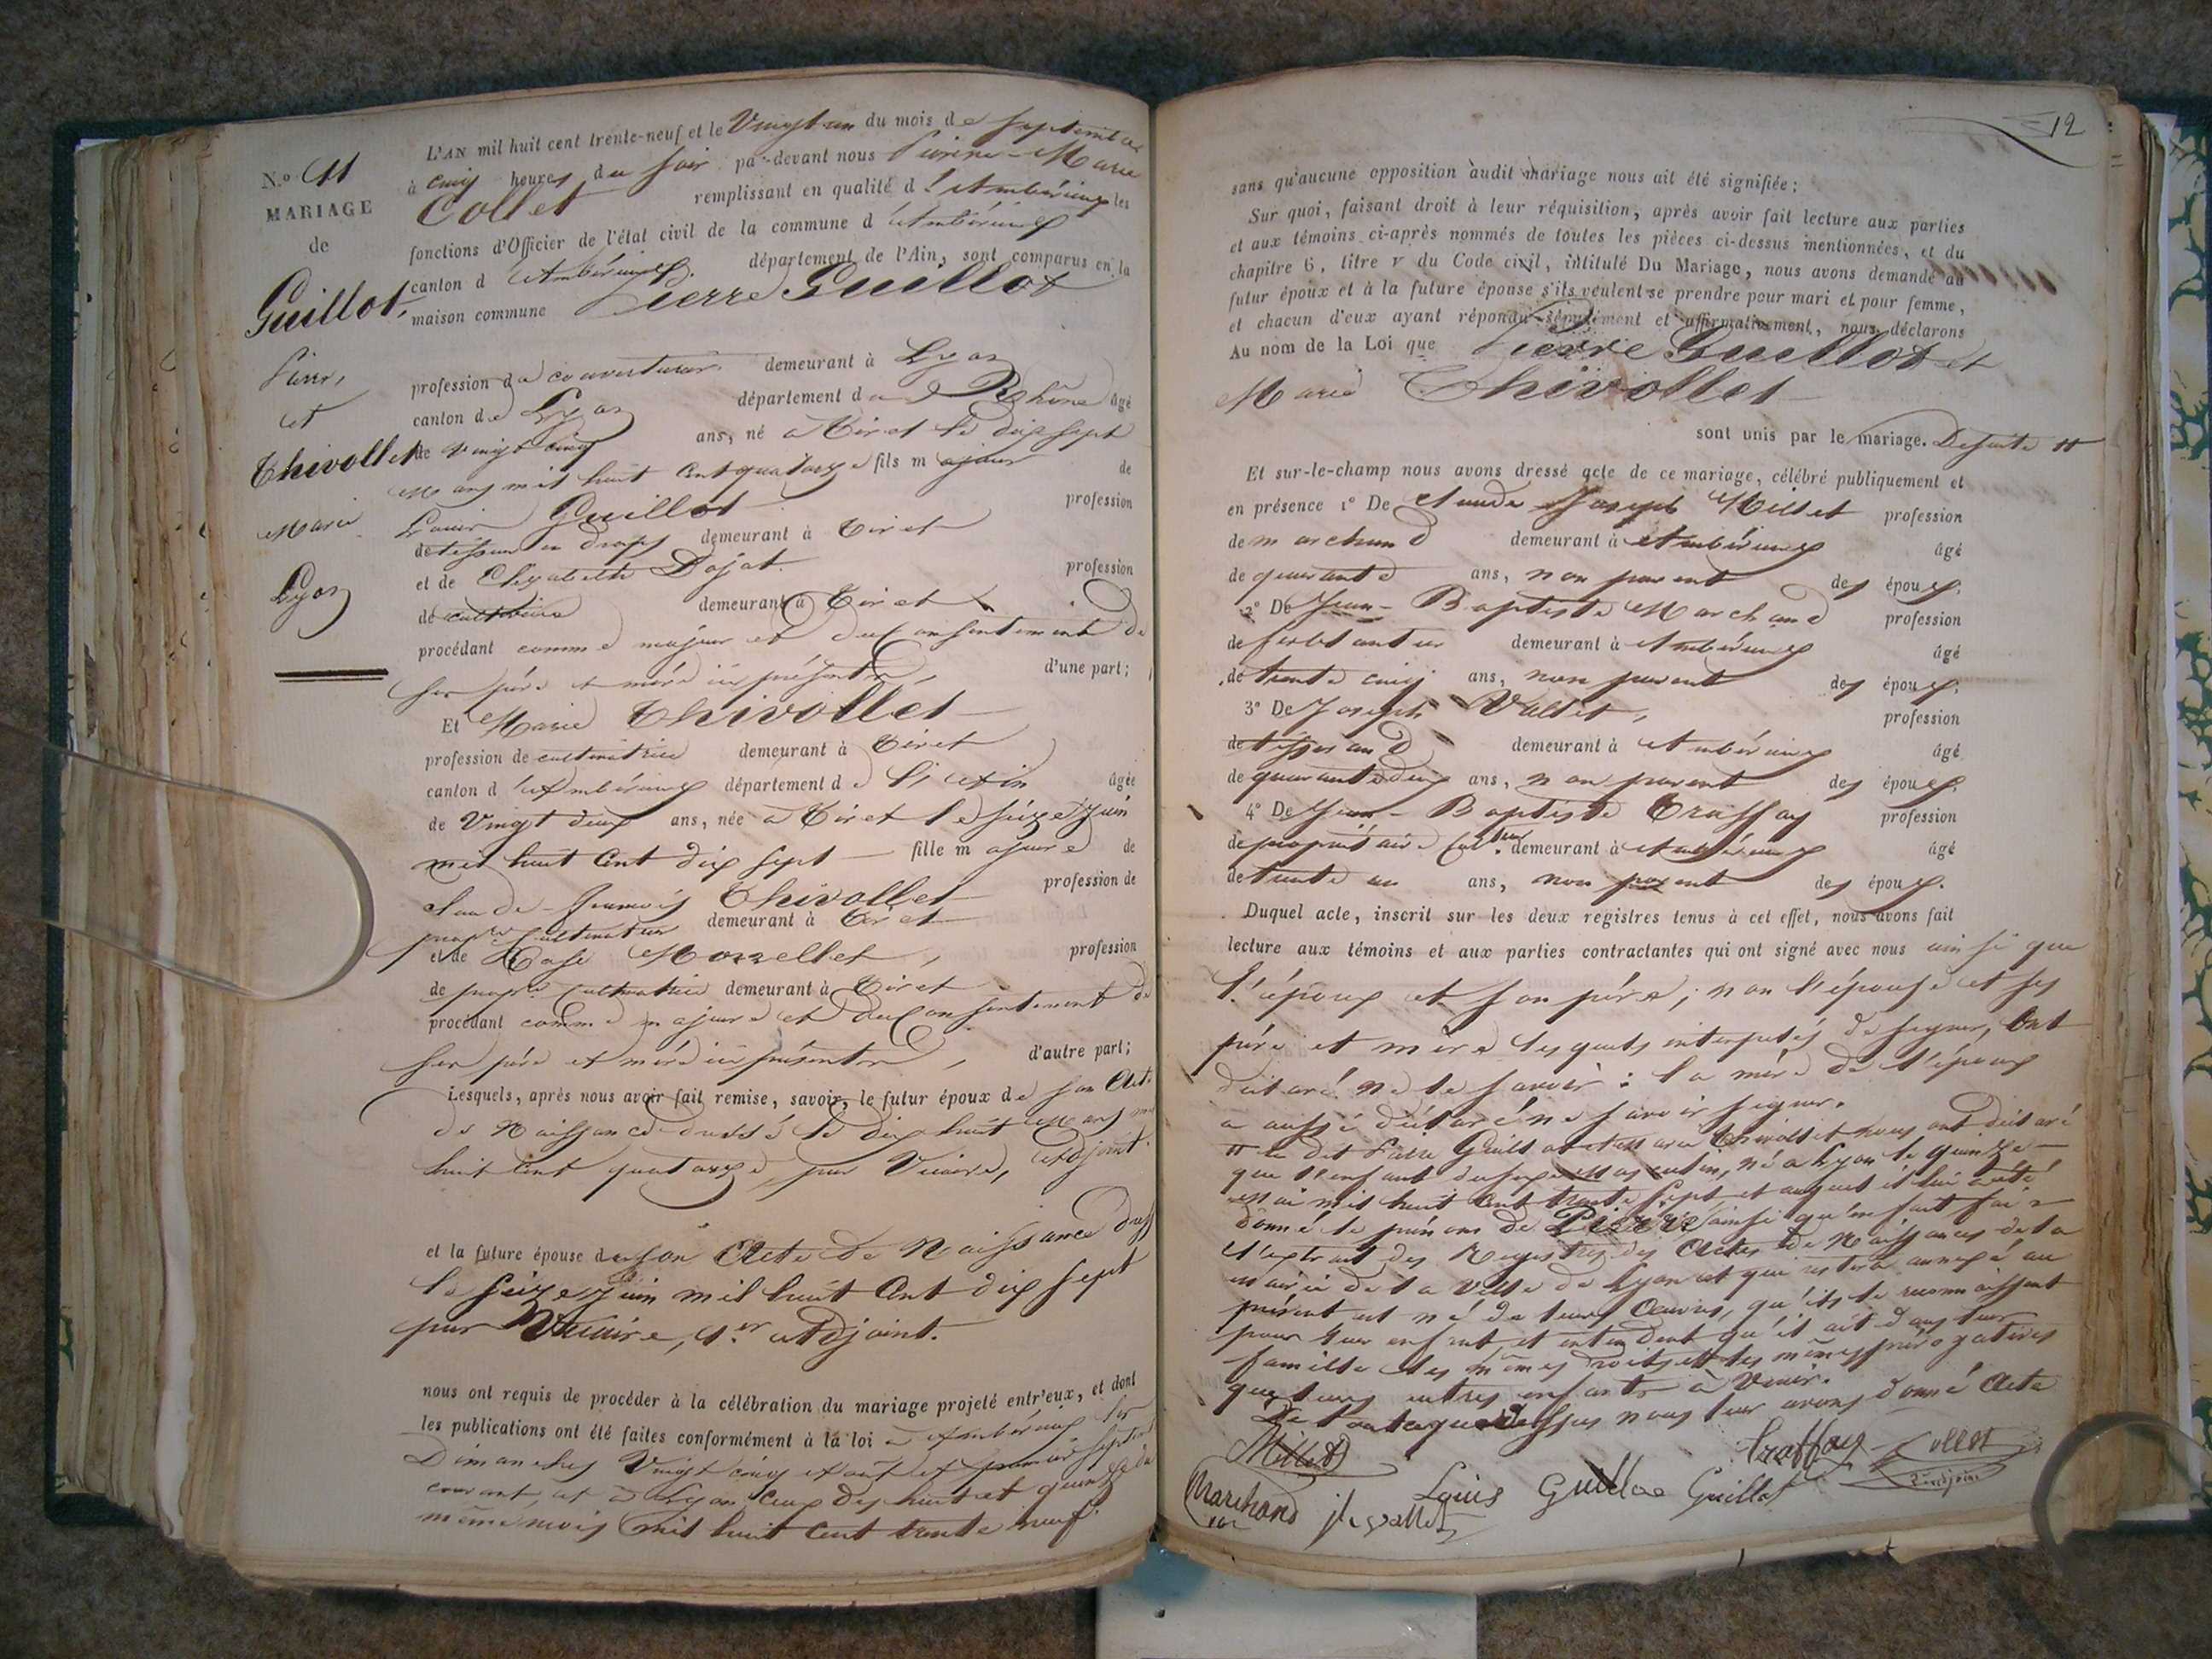 N.o 11
MARIAGE
de
Guillot,
Pierre,
et
Thivollet
Marie
Lyon
L'AN mil huit cent trente-neuf et le Vingt un du mois de septembre
à cinq heures du soir par-devant nous Pierre-Marie
Collet remplissant en qualité d' les
fonctions d'Officier de l'état civil de la commune d'Ambérieux
canton d'Ambérieux. département de l'Ain, sont comparus en la
maison commune Pierre Guillot
profession de couverturier demeurant à Lyon
canton de Lyon département du Rhône âgé
de vingt cinq ans, né à Tiret le dix sept
Mars mil huit Cent quatorze fils majeur de
Louis Guillot profession
de tisseur en draps demeurant à Tiret
et de Elizabeth Dojat. profession
de demeurant à Tiret
procédant comme majeur et du Consentement de
ses père et mère ici présents, d'une part;
Et Marie Thivollet
profession de cultivatrice demeurant à Tiret
canton d'Ambérieux département de l'Ain âgée
de Vingt deux ans, née à Tiret le seize juin
mil huit Cent dix sept fille majeure de
Claude-François Thivollet profession de
propre Cultivateur demeurant à Tiret
et de Rose Morellet, profession
de propre Cultivatrice demeurant à Tiret
procédant comme majeure et du Consentement de
ses père et mère ici présents, d'autre part;
Lesquels, après nous avoir fait remise, savoir, le futur époux de son Acte
de Naissance dressé le dix huit Mars mil
huit Cent quatorze, par Vicaire, Adjoint.
et la future épouse de son Acte de Naissance dressé
le seize Juin mil huit Cent dix sept
par Vicaire, 1.er Adjoint.
nous ont requis de procéder à la célébration du mariage projeté entr'eux, et dont
les publications ont été faites conformément à la loi à Ambérieux les
Dimanches Vingt cinq Août et premier septembre
courant, et à Lyon ceux dix huit et quinze du
même mois mil huit Cent trente neuf.
12
sans qu'aucune opposition audit mariage nous ait été signifiée;
Sur quoi, faisant droit à leur réquisition, après avoir fait lecture aux parties
et aux témoins ci-après nommés de toutes les pièces ci-dessus mentionnées, et du
chapitre 6, titre v du Code civil, intitulé Du Mariage, nous avons demandé au
futur époux et à la future épouse s'ils veulent se prendre pour mari et pour femme,
et chacun d'eux ayant répondu séparément et affirmativement, nous déclarons
Au nom de la Loi que Pierre Guillot et
Marie Thivollet
sont unis par le mariage.
Et sur-le-champ nous avons dressé acte de ce mariage, célébré publiquement et
en présence 1o De Claude Joseph Millet profession
de marchand demeurant à Ambérieux âgé
de quarante ans, non parent des époux;
2o De Jean-Baptiste Marchand profession
de ferblantier demeurant à Ambérieux âgé
de trente cinq ans, non parent des époux;
3o De Joseph Vallet, profession
de tisserand demeurant à Ambérieux âgé
de quarante deux ans, non parent des époux.
4o De Jean-Baptiste Traffay profession
de propriétaire Cult.teur demeurant à Ambérieux âgé
de trente un ans, non parent des époux.
Duquel acte, inscrit sur les deux registres tenus à cet effet, nous avons fait
lecture aux témoins et aux parties contractantes qui ont signé avec nous ainsi que
l'époux et son père; non l'épouse et ses
père et mère lesquels interpelés de signer, Ont
déclaré ne le savoir: la mère de l'époux
a aussi déclaré ne savoir signer.
le dit Pierre Guillot et Marie Thivollet nous ont déclaré
que l'enfant du sexe Masculin, né à Lyon le quinze
Mai mil huit Cent trente sept et auquel il lui a été
donné le prénom de Pierre ainsi qu'en fait foi
l'extrait des Registres des Actes de Naissances de la
Mairie de la Ville de Lyon et qui restera annexé au
présent est né de leurs Oeuvres, qu'ils le reconnaissent
pour leur enfant, et entendent qu'il ait dans leur
famille les mêmes droits et les mêmes prérogatives
que leurs autres enfants à Venir.
De tout ce que dessus nous leur avons donné Acte
Millet Traffay Collet
Marchand Louis Guillot Guillot